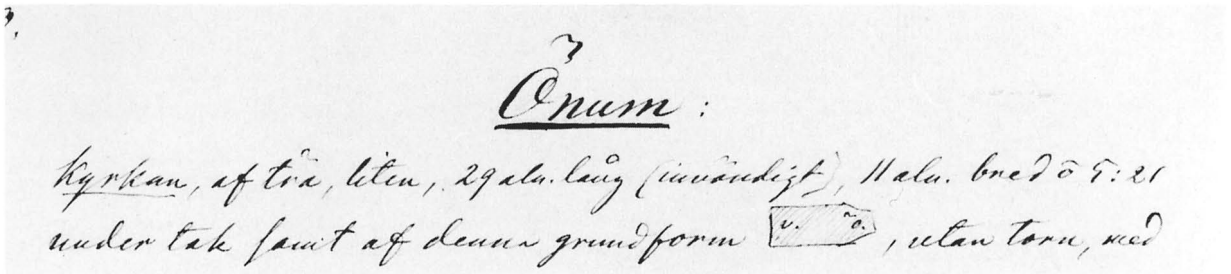 Önum:
Kyrkan, af trä, liten, 29 aln. lång (invändigt), 11 aln. bred o 5: 21
under tak samt af denna grundform v. ö. , utan torn, med